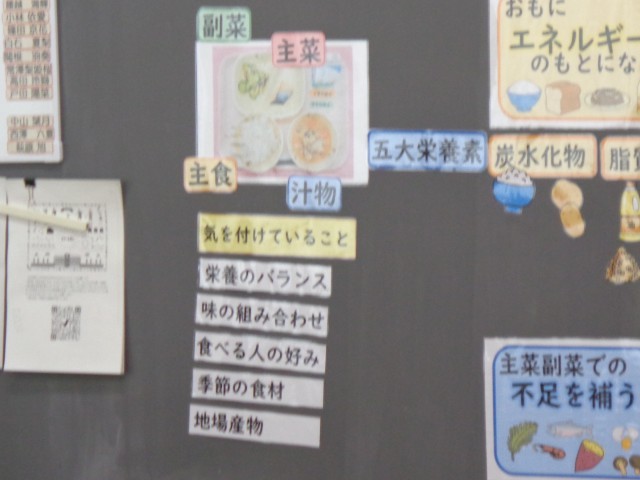 副菜
主菜
主食
汁物
五大栄養素
炭水化物
脂質
おもに
エネルギー
のもとにな
気を付けていること
栄養のバランス
味の組み合わせ
食べる人の好み
季節の食材
地場産物
主菜副菜での
不足を補う